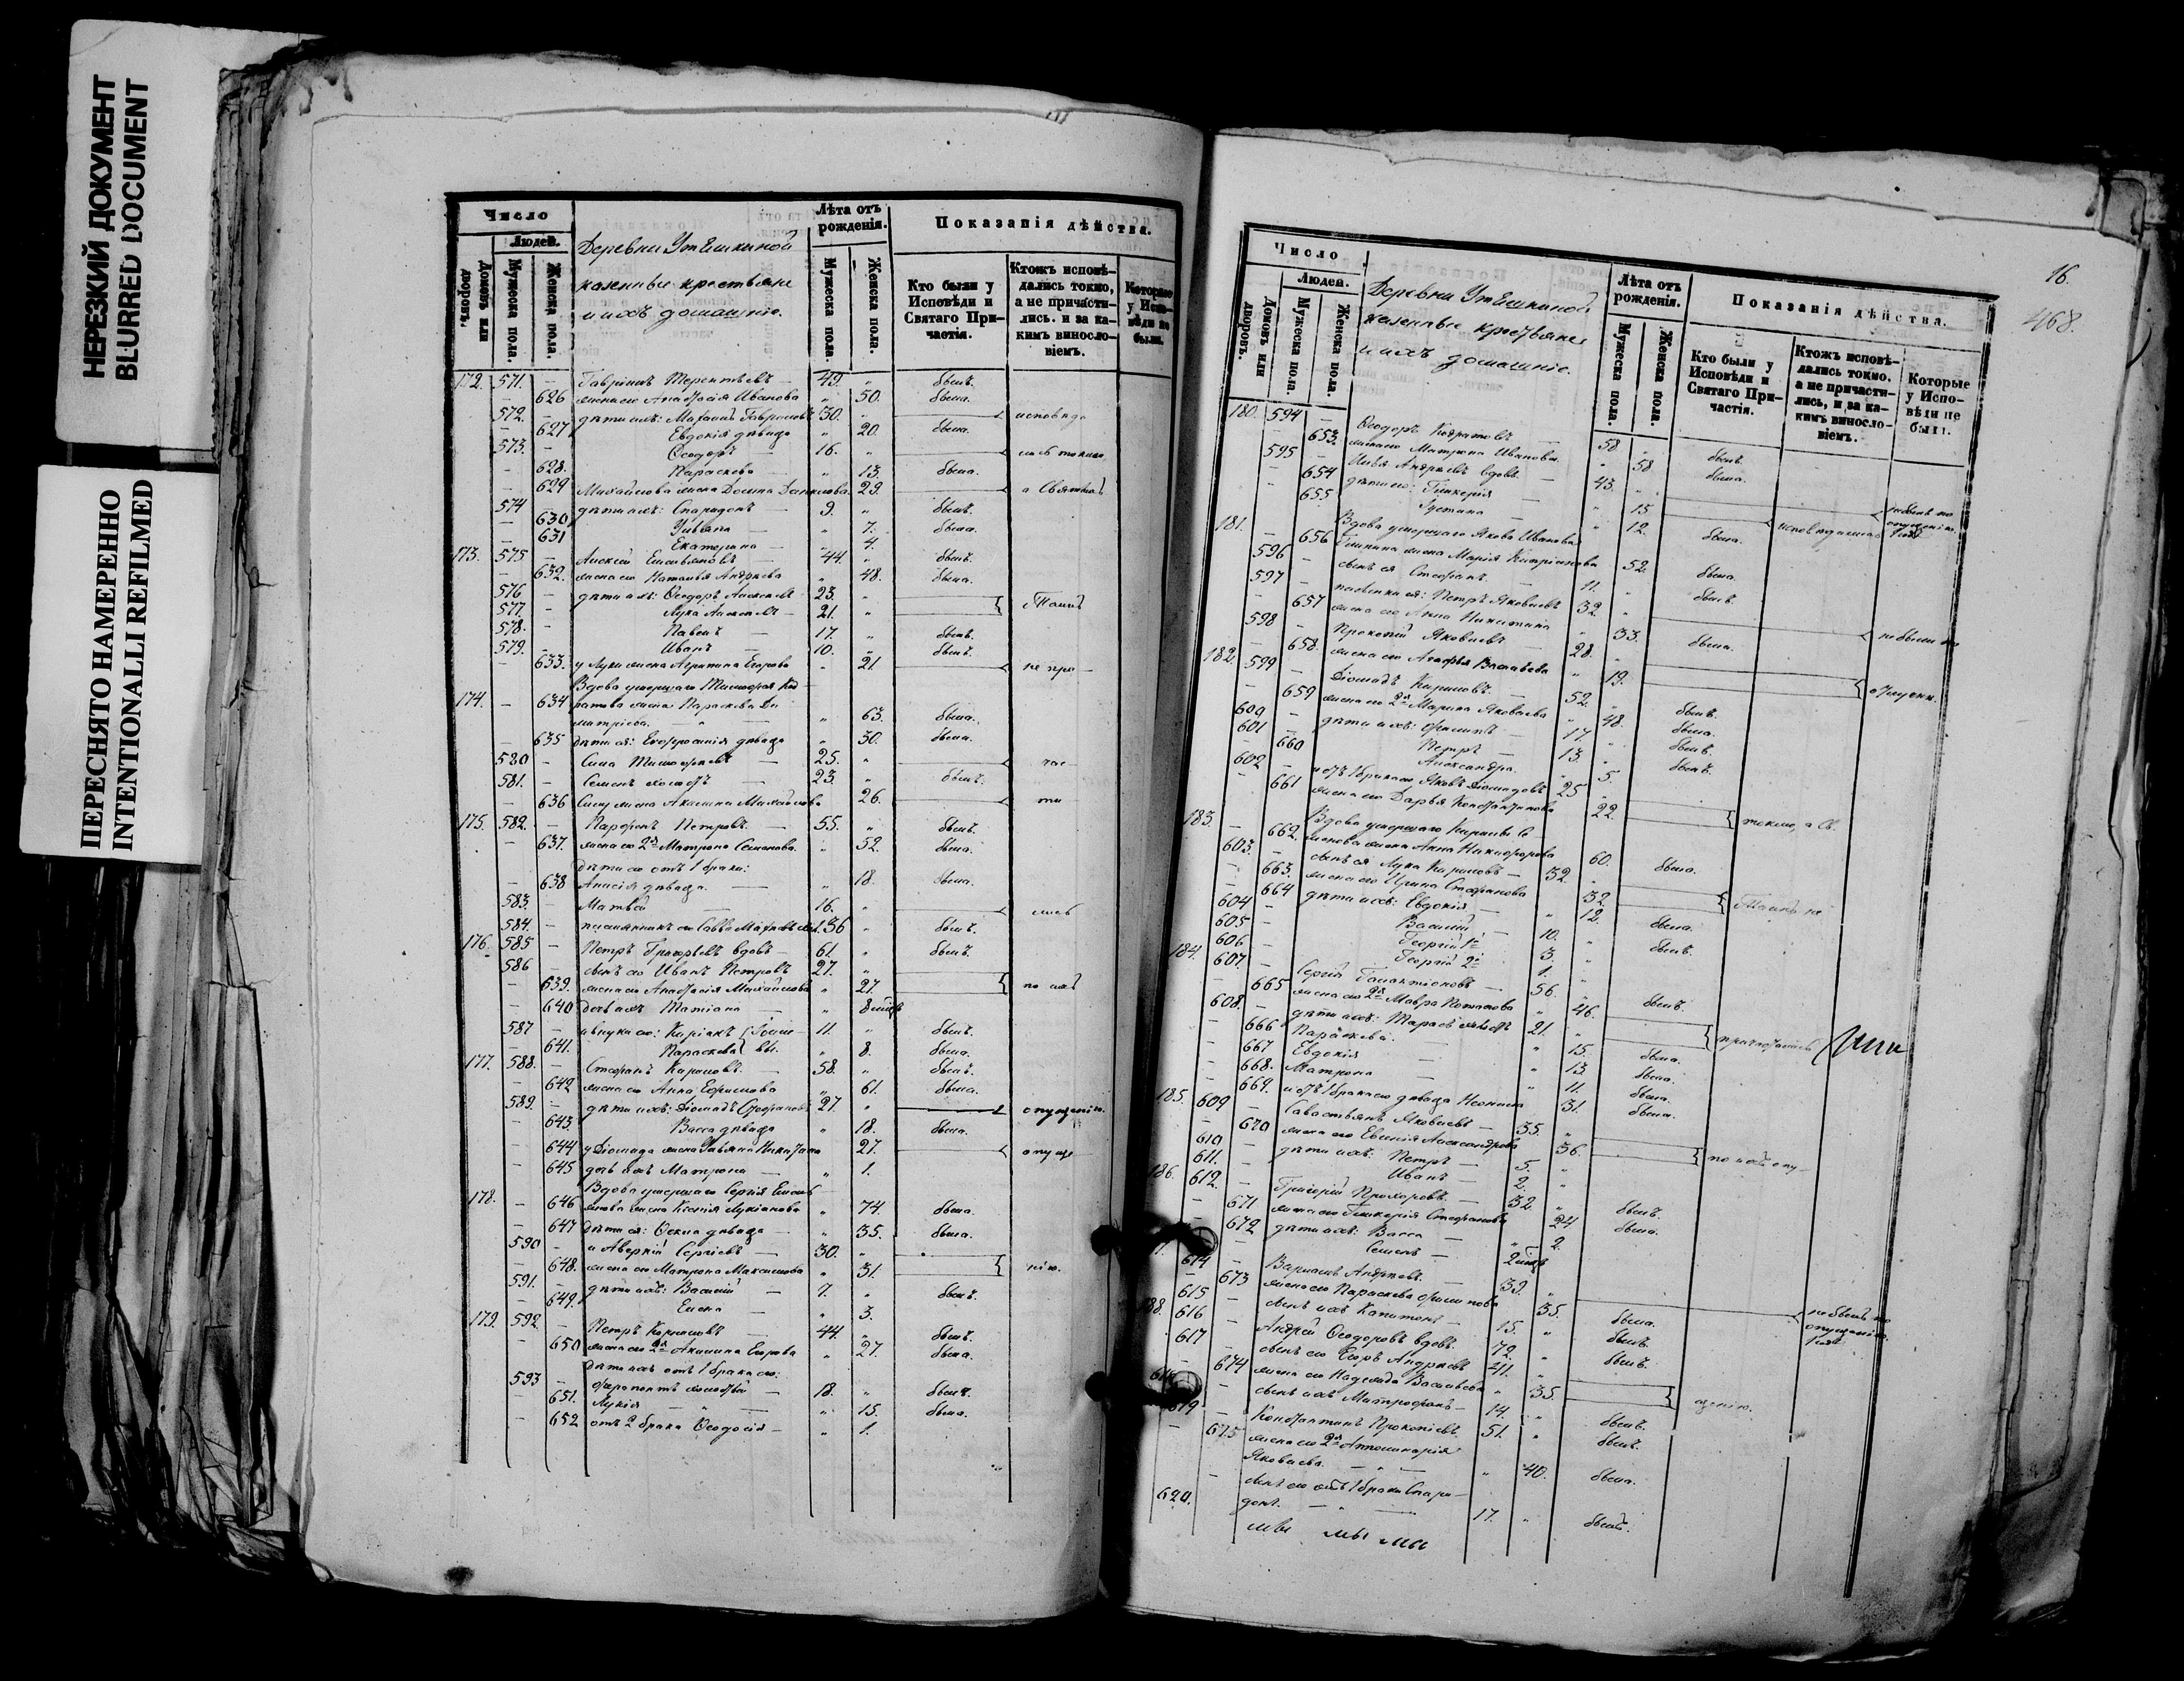 НЕРЕЗКИЙ ДОКУМЕНТ
BLURRED DOCUMENT
ПЕРЕСНЯТО НАМЕРЕННО
INTENTIONALLI REFILMED
Число
Лѣта отъ рожденія.
Показанія дѣйства.
Людей.
Домовъ или дворовъ.
Мужеска пола.
Женска пола.
Деревни Утѣшкиной
казенные крестьяне
и ихъ домашніе.
Мужеска пола.
Женска пола.
Кто были у Исповѣди и Святаго Причастія.
Ктожъ исповѣдались токмо, а не причастились. и за каким винословіемъ.
Которые у Исповѣди не были.
172. 571. — Гавріилъ Терентьевъ — 49. „ былъ.
— 626 жена его Анастасія Иванова „ 50. была.
572. — дѣти ихъ: Михаилъ Гавриловъ 30. „ исповѣда
— 627 Евдокія дѣвица „ 20. была.
573. — Ѳеодоръ — 16. „ лись токмо
— 628. Параскева — „ 13. была.
— 629 Михайлова жена Домна Данилова 29. а Святыхъ
574 — дѣти ихъ: Спиридонъ — 9. „ былъ.
— 630 Ульяна — „ 7. была.
— 631 Екатерина — „ 4.
173. 575 — Алексій Емельяновъ — 44. „ былъ.
— 632. жена его Наталья Андреева „ 48. была.
576 — дѣти ихъ: Ѳеодоръ Алексѣевъ 23. „
577. — Лука Алексѣевъ — 21. „ Таинъ
578. — Павелъ — 17. „ былъ.
579. — Иванъ — 10. „ былъ.
— 633. у Луки жена Агрипина Егорова „ 21 не при—
Вдова умершаго Тимоѳея Код—
174. — 634 ратова жена Параскева Ди
митріева. — „ — „ 63. была.
— 635 дѣти ея: Евфросинія дѣвица „ 30. была.
580 — Сила Тимоѳеевъ — 25. „ час—
581. — Семенъ холостъ — 23. „ былъ.
— 636 Силы жена Акилина Михайлова 26. ти
175. 582. — Парѳенъ Петровъ. — 55. „ былъ.
— 637. жена его 2я Матрона Семенова. „ 52. была.
Дѣти его отъ 1 брака:
— 638 Анисія дѣвица. — „ 18. была.
583. — Матвѣй — 16. „ лись
584. — племянникъ его Савва 36 „ былъ.
176. 585 — Петръ Григорьевъ вдовъ — 61. „ былъ.
586 — сынъ его Иванъ Петровъ 27. „
— 639. жена его Анастасія Михайлова „ 27. по ихъ
— 640 дочь ихъ Татіана — „ 8
587 — и внуки его: Киріакъ 11. „ былъ.
— 641. Параскева „ 8. была.
177. 588. — Стефанъ Кириловъ. — 58. „ былъ.
— 642 жена его Анна Ефимова „ 61. была.
589. — дѣти ихъ: Діомидъ Стефановъ 27. „ опущенію.
— 643. Васса дѣвица „ 18. была.
— 644 у Діомида жена Ульяна Никитина 27. опуще—
— 645 дочь ихъ Матрона — „ 1.
Вдова умершаго Сергія Емель—
178. — 646 янова жена Ксенія Лукіанова „ 74. была.
— 647 дѣти ея: Ѳекла дѣвица — „ 35. была.
590 — и Аверкій Сергіевъ — 30. „
— 648. жена его Матрона Максимова „ 31. нію.
591. — дѣти ихъ: Василій — 7. „ былъ.
— 649. Елена — „ 3.
179. 592. — Петръ Кириловъ — 44. „ былъ.
— 650 жена его 2я Акилина Егорова „ 27. была.
Дѣти ихъ отъ 1 брака его:
593 — Ферапонтъ холостой — 18. „ былъ.
651. Лукія — „ — „ 15. была.
— 652 отъ 2 брака Ѳеодосія — „ 1.
16.
468.
Число
Лѣта отъ рожденія.
Показанія дѣйства.
Людей.
Домовъ или дворовъ.
Мужеска пола.
Женска пола.
Деревни Утѣшкиной
казенные крестьяне
и ихъ домашніе.
Мужеска пола.
Женска пола.
Кто были у Исповѣди и Святаго Причастія.
Ктожъ исповѣдались токмо. а не причастились, и за каким винословіемъ.
Которые у Исповѣди не были.
180. 594 — Ѳеодоръ Кодратовъ — 58 „ былъ.
— 653. жена его Матрона Иванова „ 58 была.
595 — Илья Андреевъ вдовъ. — 43. „ не былъ по
— 654 дѣти его: Гликерія — „ 15 исповѣдалась опущенію.
— 655 Устинія — „ 12. была.
181. Вдова умершаго Якова Иванова
— 656 жена Марія Кипріанова 52. была.
596 — сынъ ея Стефанъ. — 11. „ былъ.
597 — пасынки ея: Петръ Яковлевъ 32. „ не были по
— 657 жена его Анна Никитина „ 33. была.
598 — Прокопій Яковлевъ — 28. „
— 658. жена его Агафья Васильева „ 19. опущен.
182. 599 — Діомидъ Кириловъ. — 52. „ былъ.
— 659 жена его 2я Марина Яковлева „ 48. была.
600 — дѣти ихъ: Филиппъ — 17. „ былъ.
601 — Петръ — 13. „ былъ.
— 660 Александра. „ 5.
602 — и отъ 1 брака его Яковъ Діомидовъ 25 „
— 661 жена его Дарья Константинова 22. токмо, а Св.
183. Вдова умершаго Кирилы Се—
— 662. менова жена Анна Никифорова 60. была.
603. — сынъ ея Лука Кириловъ — 32. „
— 663. жена его Ирина Стефанова 32. Таинъ не
— 664 дѣти ихъ: Евдокія — „ 12. была.
604 — Василій — 10. „ былъ.
605 — Георгій 1й 3. „
606 — Георгій 2й 1. „
184. 607. — Сергій Галактіоновъ — 56. „ былъ.
— 665 жена его 2я Мавра Потапова „ 46.
608. — дѣти ихъ: Тарасъ холостъ 21. „ причастились
— 666 Параскева. — „ 15. была.
— 667 Евдокія — „ 13. была.
— 668. Матрона — „ 11. была.
— 669. и отъ 1 брака его дѣвица Неонила 31. была.
185. 609 — Савастьянъ Яковлевъ — 35. „
— 670 жена его Евгенія Александрова 36. по ихъ опу—
610 — дѣти ихъ: Петръ — 5. „
611. — Иванъ — 2. „
186. 612. — Григорій Прохоровъ. — 32. „ былъ.
— 671 жена его Гликерія Стефанова 24 была.
— 672 дѣти ихъ: Васса — „ 2.
Семенъ — 2
614 — Варлаамъ Андреевъ. — 39. „ не былъ по
— 673 жена его Параскева Филипова 35. была. опущенію.
615 — сынъ ихъ Капитонъ — 15. „ былъ.
188. 616 — Андрей Ѳеодоровъ вдовъ. 72. „ былъ.
617 — сынъ его Егоръ Андреевъ 41. „
— 674 жена его Надежда Васильева „ 35. щенію.
— сынъ ихъ Митрофанъ — 14. „ былъ.
619 — Константинъ Прокопіевъ. 51. „ былъ.
— 675 жена его 2я Апполинарія
Яковлева. — „ — „ 40. была.
620. — сынъ его отъ 1 брака Спири—
донъ. — „ — 17. „ былъ.